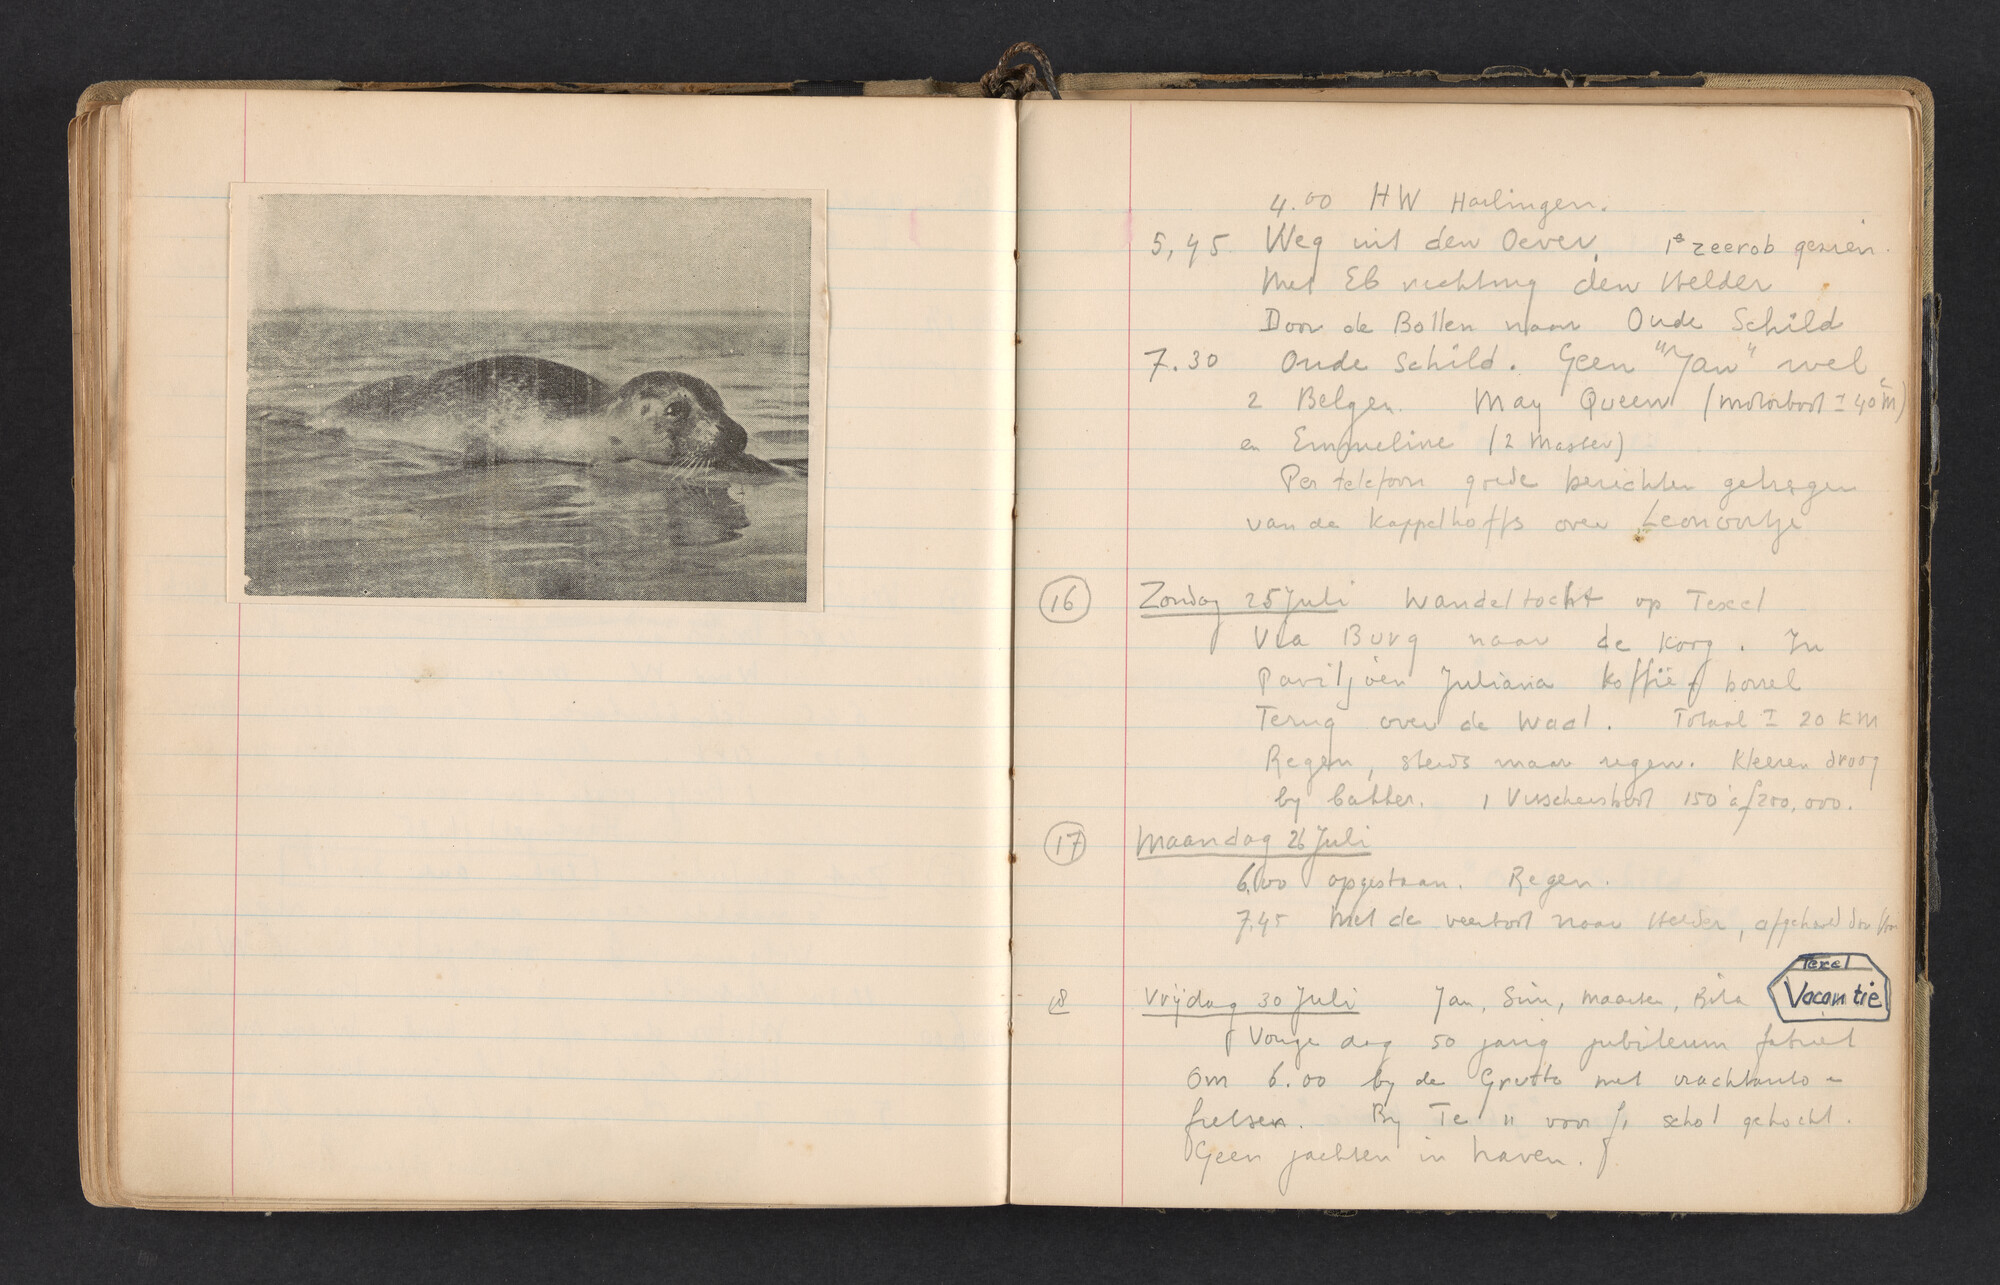 4.00 HW Harlingen.
5,45 Weg uit den Oever. 1e zeerob gezien.
Met Eb richting den Helder
Door de Bollen naar Oude Schild
7.30 Oude Schild. Geen "Jan" wel
2 Belgen. May Queen (motorboot ± 40 m)
en Emmeline (2 Master)
Per telefoon goede berichten gekregen
van de Kappelhoffs over Leonoortje
16 Zondag 25 Juli Wandeltocht op Texel
Via Burg naar de Korg. In
Paviljoen Juliana koffie + borrel
Terug over de Waal. Totaal ± 20 KM
Regen, steeds maar regen. Kleeren droog
by bakker. 1 Visschersboot 150 à ƒ 200,000.
17 Maandag 26 Juli
6.00 opgestaan. Regen.
7.45 Met de veerboot naar Helder, afgehaald door
Texel
18 Vrijdag 30 Juli Jan, Sim, Maarten, Rita Vacantie
Vorige dag 50 jarig jubileum fabriek
Om 6.00 by de Grutto met vrachtauto +
fietsen. By Te voor ƒ1 schol gekocht.
Geen jachten in haven.